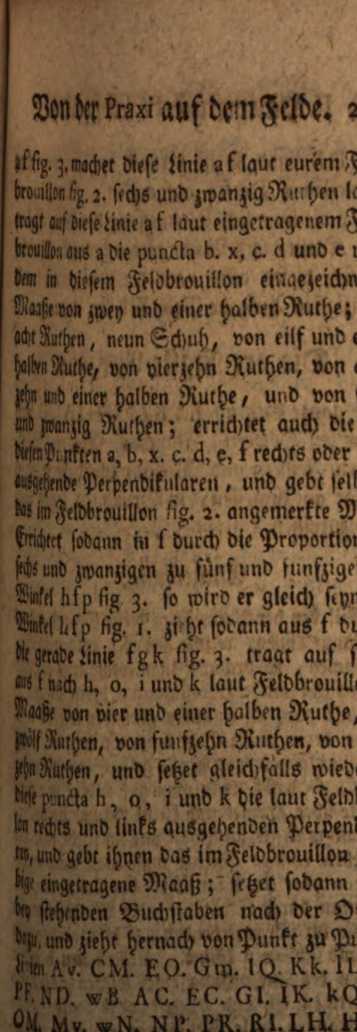 Von der Praxi auf dem Felde. 2
af fig. 3. machet diese Linie a f laut eurem
brouillon fig. 2. sechs und zwanzig Ruthen
tragt auf diese Linie a f laut eingetragenem
brouillon aus a die puncta b. x, c. d und e
dem in diesem Feldbrouillon
Maaße von zwey und einer halben Ruthe;
acht Ruthen, neun Schuh, von eilf und
halben Ruthe, von vierzehn Ruthen, von
zehn und einer halben Ruthe, und von
und zwanzig Ruthen; errichtet auch die
diesen Punkten a, b, x. c. d, e, f rechts oder
ausgehende Perpendikularen, und gebt
das im Feldbrouillon fig. 2. angemerkte
Errichtet sodann in f durch die
sechs und zwanzigen zu fünf und
Winkel hfp fig. 3. so wird er gleich
Winkel hfp fig. 1. zieht sodann aus f
die gerade Linie fgk fig. 3. tragt auf
aus f nach h, o, i und k laut
Maaße von vier und einer halben Ruthe,
zwölf Ruthen, von funfzehn Ruthen, von
zehn Ruthen, und setzet gleichfalls
diese puncta h, o, i und k die laut
rechts und links ausgehenden
und gebt ihnen das im Feldbrouillon
eingetragene Maaß; setzet sodann
stehenden Buchstaben nach der
dazu, und zieht hernach von Punkt zu
Av. CM. EO. Gm. IQ. Kk.
PF. ND. wB AC. EC. GI. IK. kQ
OM. Mv. wN. NP. PR. RI. LH.